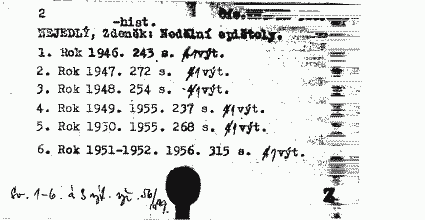 2
-hist.
NEJEDLÝ, Zdeněk: Nedělní epištoly.
1. Rok 1946. 243 s. 1 výt.
2. Rok 1947. 272 s. 1 výt.
3. Rok 1948. 254 s. 1 výt.
4. Rok 1949. 1955. 237 s. 1 výt.
5. Rok 1950. 1955. 268 s. 1 výt.
6. Rok 1951-1952. 1956. 315 s. 1 výt.
Sv. 1-6. à 3 výt.
Z